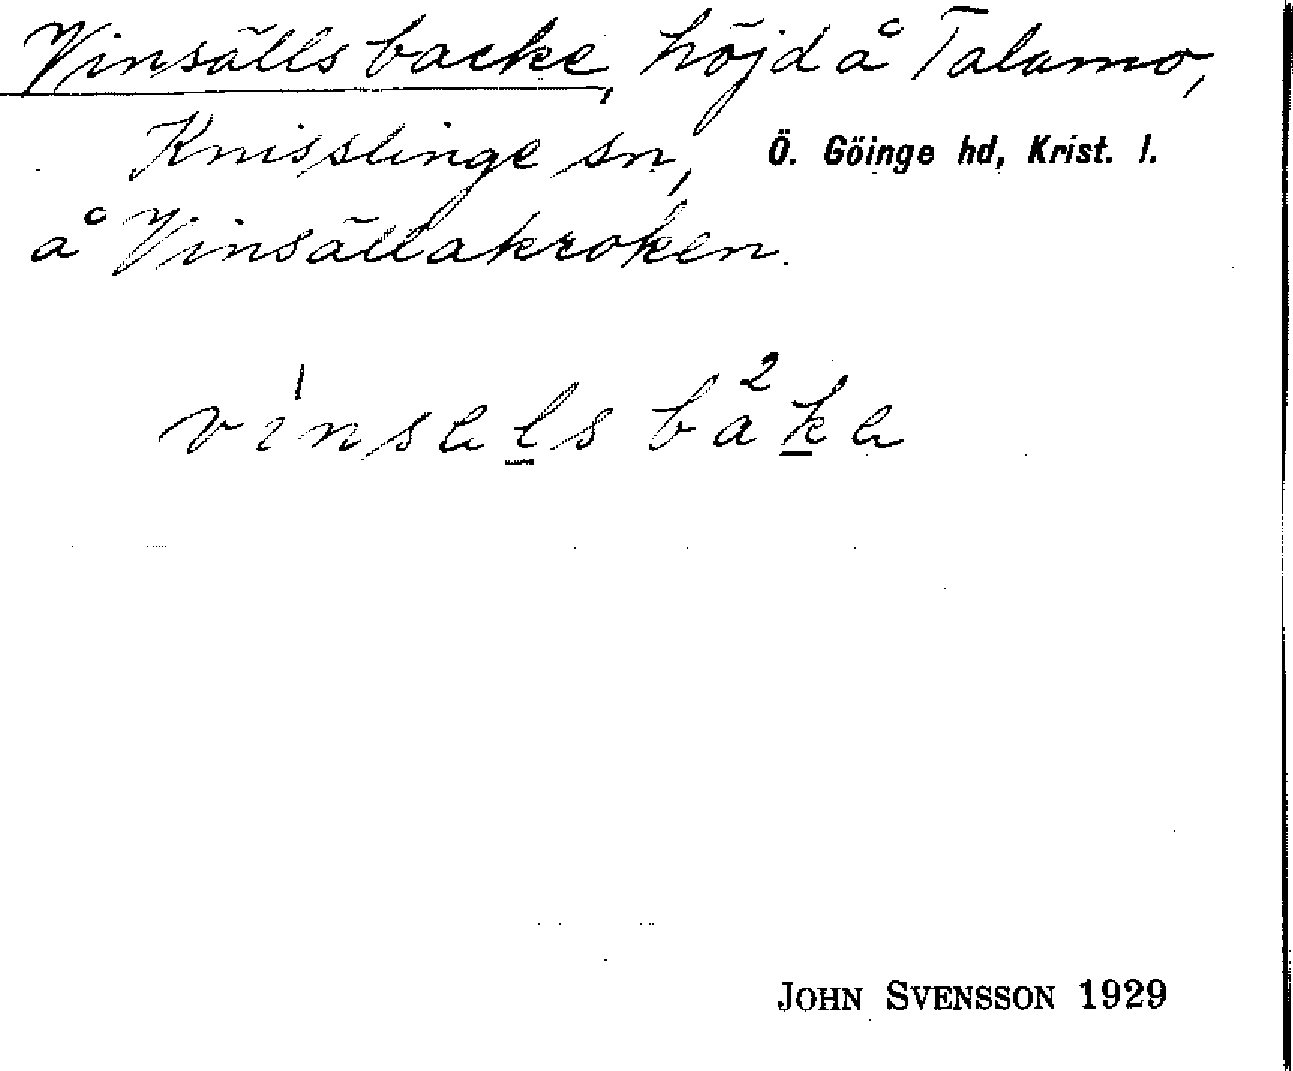 Vinsälls backe, höjd å Talamo,
Knisslinge sn, Ö. Göinge hd, Krist. l.
å Vinsällakroken.
vinsels bake
JOHN SVENSSON 1929